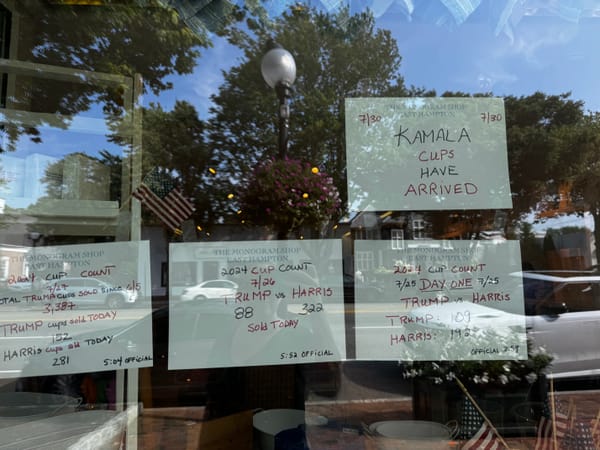 THE MONOGRAM SHOP
EAST HAMPTON
7/30 7/30
KAMALA
CUPS
HAVE
ARRIVED
THE MONOGRAM SHOP
EAST HAMPTON
2024 CUP COUNT
7/27
TOTAL TRUMP CUPS SOLD SINCE 6/5
3,387
TRUMP cups sold TODAY
152
HARRIS cups sold TODAY
281
5:04 OFFICIAL
THE MONOGRAM SHOP
EAST HAMPTON
2024 CUP COUNT
7/26
TRUMP vs HARRIS
88 322
SOLD TODAY
5:52 OFFICIAL
THE MONOGRAM SHOP
EAST HAMPTON
2024 CUP COUNT
7/25 DAY ONE 7/25
TRUMP vs. HARRIS
TRUMP: 109
HARRIS:
OFFICIAL